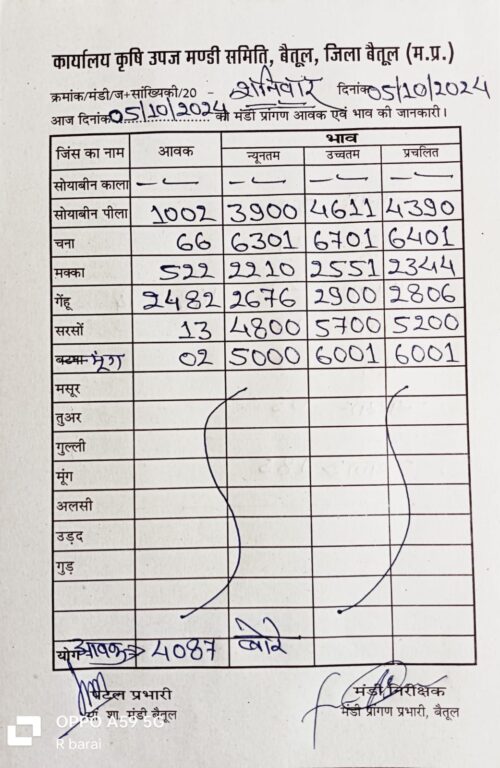 कार्यालय कृषि उपज मण्डी समिति, बैतूल, जिला बैतूल (म.प्र.)
क्रमांक/मंडी/ज+सांख्यिकी/20 - शनिवार दिनांक 05/10/2024
आज दिनांक 05/10/2024 को मंडी प्रांगण आवक एवं भाव की जानकारी।
जिंस का नाम आवक भाव
न्यूनतम उच्चतम प्रचलित
सोयाबीन काला -- -- -- --
सोयाबीन पीला 1002 3900 4611 4390
चना 66 6301 6701 6401
मक्का 522 2210 2551 2344
गेंहू 2482 2676 2900 2806
सरसों 13 4800 5700 5200
बटमा मूंग 02 5000 6001 6001
मसूर
तुअर
गुल्ली
मूंग
अलसी
उड़द
गुड़
योग आवक 4087 बोरे
पटल प्रभारी मंडी निरीक्षक
शा. मंडी बैतूल मंडी प्रांगण प्रभारी, बैतूल
OPPO A59 5G
R barai